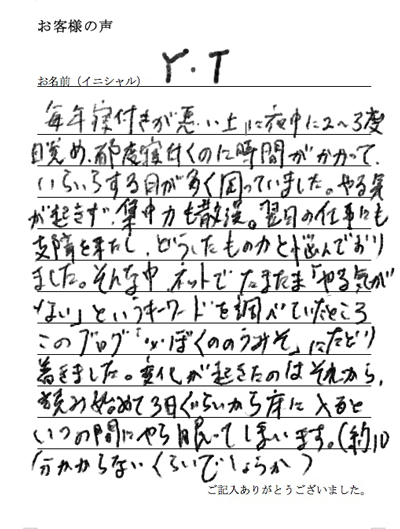 お客様の声
お名前（イニシャル） Y・T
毎年寝付きが悪い上に夜中に2〜3度
目覚め、都度寝付くのに時間がかかって、
いらいらする日が多く困っていました。やる気
が起きず、集中力も散漫。翌日の仕事にも
支障を来たし、どうしたものかと悩んでおり
ました。そんな中、ネットでたまたま「やる気が
ない」というキーワードを調べていたところ
このブログ「ぼくののうみそ」にたどり
着きました。変化が起きたのはそれから、
読み始めて3日くらいから床に入ると
いつの間にやら眠ってしまいます。(約10
分かからないくらいでしょうか)
ご記入ありがとうございました。